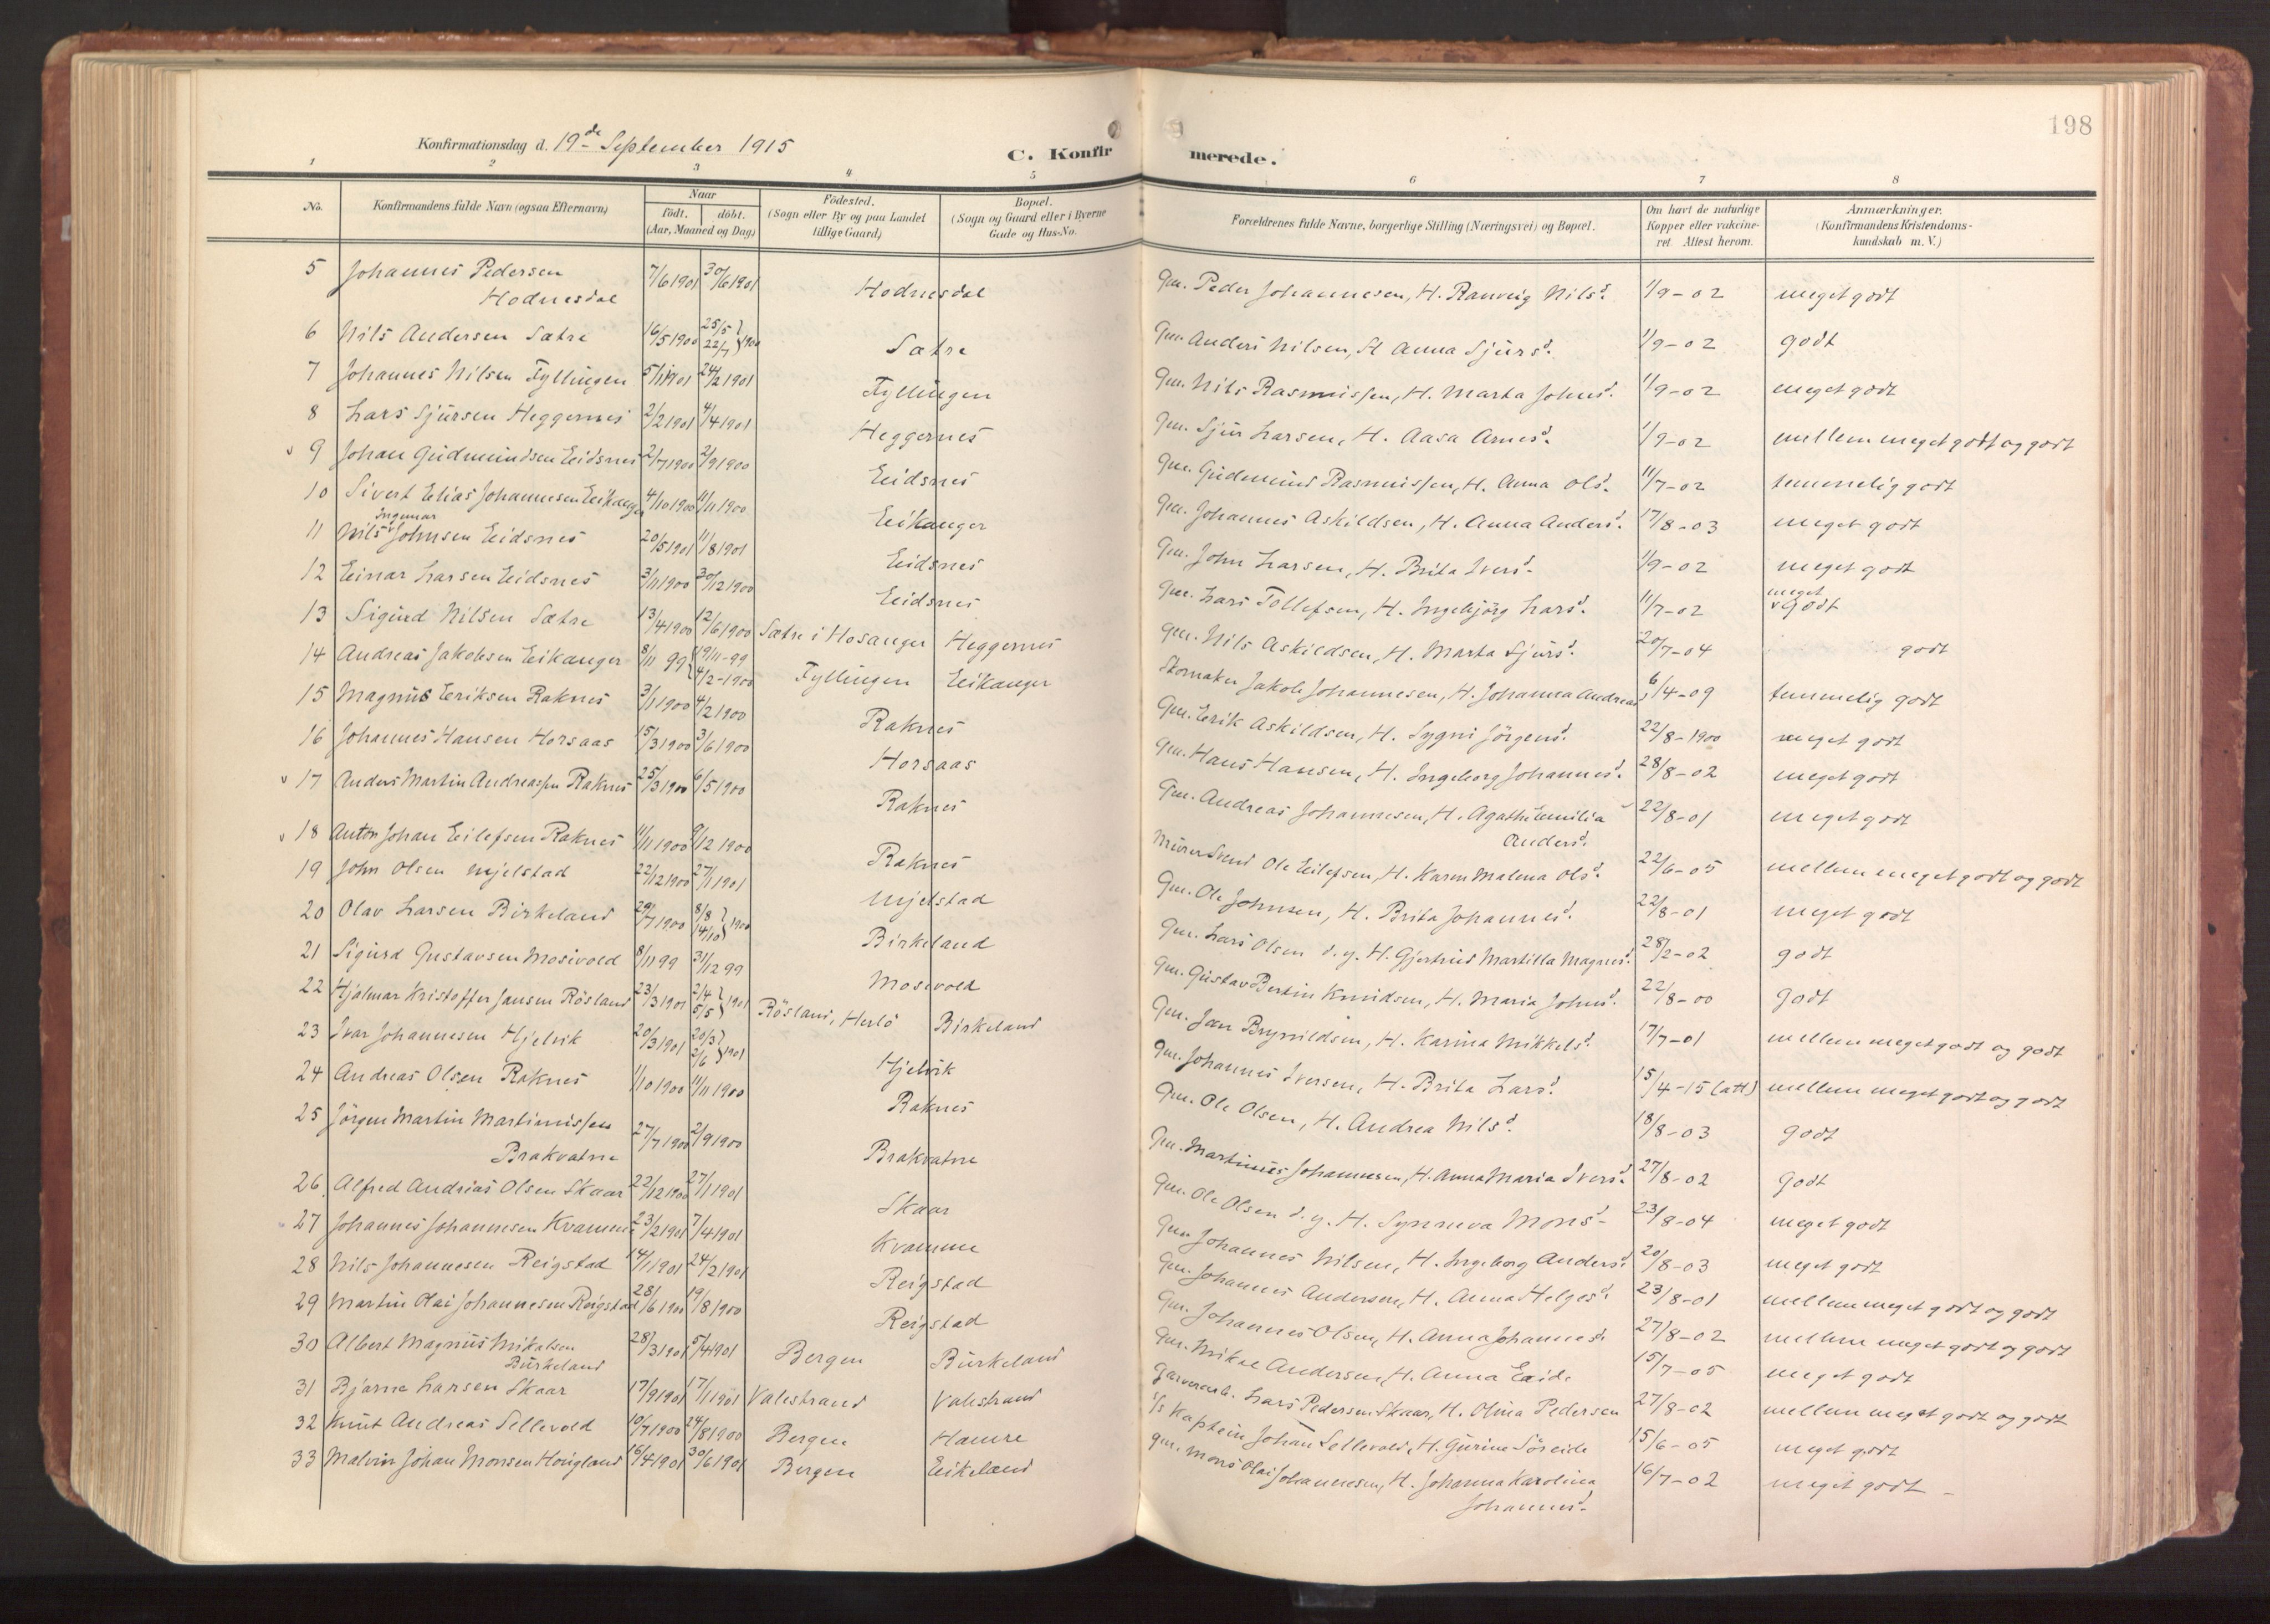 198
Konfirmationsdag d. 19de September 1915
C. Konfirmerede.
1 2 3 4 5 6 7 8
No. Konfirmandens fulde Navn (ogsaa Efternavn) Naar födt. döbt. (Aar, Maaned og Dag) Födested. (Sogn eller By og paa Landet tillige Gaard) Bopæl. (Sogn og Gaard eller i Byerne Gade og Hus-No. Forældrenes fulde Navne, borgerlige Stilling (Næringsvei) og Bopæl. Om havt de naturlige Kopper eller vakcineret Attest herom. Anmærkninger. (Konfirmandens Kristendomskundskab m. V.)
5 Johannes Pedersen Hodnesdal 7/6 1901 30/6 1901 Hodnesdal Gm. Peder Johannesen, H. Ranveig Nilsd. 11/9-02 meget godt
6 Nils Andersen Sætre 16/5 1900 25/5 22/7 } 1900 Sætre Gm. Anders Nilsen, H. Anna Sjursd. 11/9-02 godt
7 Johannes Nilsen Fyllingen 5/1 1901 24/2 1901 Fyllingen Gm. Nils Rasmussen, H. Marta Johnsd. 11/9-02 meget godt
8 Lars Sjursen Heggernes 2/2 1901 4/4 1901 Heggernes Gm. Sjur Larsen, H. Aasa Arnesd. 11/9-02 mellem meget godt og godt
v 9 Johan Gudmundsen Eidsnes 2/7 1900 2/9 1900 Eidsnes Gm. Gudmund Rasmussen, H. Anna Olsd. 11/7-02 temmelig godt
10 Sivert Elias Johannesen Eikanger 4/10 1900 11/11 1900 Eikanger Gm. Johannes Askildsen, H. Anna Andersd. 17/8-03 meget godt
11 Nils Ingemar Johnsen Eidsnes 20/5 1901 11/8 1901 Eidsnes Gm. John Larsen, H. Brita Iversd. 11/9-02 meget godt
12 Einar Larsen Eidsnes 3/11 1900 30/12 1900 Eidsnes Gm. Lars Tollefsen, H. Ingebjörg Larsd. 11/7-02 meget godt
13 Sigurd Nilsen Sætre 13/4 1900 12/6 1900 Sætre i Hosanger Heggernes Gm. Nils Askildsen, H. Marta Sjursd. 20/7-04 godt
14 Andreas Jakobsen Eikanger 8/11 99 19/11-99 4/2-1900 Fyllingen Eikanger Skomaker Jakob Johannesen, H. Johanna Andreasd. 6/4-09 temmelig godt
15 Magnus Eriksen Raknes 3/1 1900 4/2 1900 Raknes Gm. Erik Askildsen, H. Sygni Jörgensd. 22/8-1900 meget godt
16 Johannes Hansen Horsaas 15/3 1900 3/6 1900 Horsaas Gm. Hans Hansen, H. Ingeborg Johannesd. 28/8-02 meget godt
v 17 Anders Martin Andreassen Raknes 25/3 1900 6/5 1900 Raknes Gm. Andreas Johannesen, H. Agathe Emilia Andersd. 22/8-01 meget godt
v 18 Anton Johan Eilefsen Raknes 11/11 1900 9/12 1900 Raknes Murersvend Ole Eilefsen, H. Karen Malena Olsd. 22/6-05 mellem meget godt og godt
19 John Olsen Mjelstad 22/12 1900 27/1 1901 Mjelstad Gm. Ole Johnsen, H. Brita Johannesd. 22/8-01 meget godt
20 Olav Larsen Birkeland 29/7 1900 8/8 14/10 } 1900 Birkeland Gm. Lars Olsen d.y. H. Gjertrud Martilla Magnesd. 28/2-02 godt
21 Sigurd Gustavsen Mosevold 8/11 99 31/12 99 Mosevold Gm. Gustav Bertin Knudsen, H. Maria Johnsd. 22/8-00 godt
22 Hjalmar Kristoffer Jansen Rösland 23/3 1901 2/4 5/5 } 1901 Rösland, Herlö Birkeland Gm. Jan Brynildsen, H. Karina Mikkelsd. 17/7-01 mellem meget godt og godt
23 Ivar Johannesen Hjelvik 20/3 1901 20/3 2/6 } 1901 Hjelvik Gm. Johannes Iversen, H. Brita Larsd. 15/4-15 (att) mellem meget godt og godt
24 Andreas Olsen Raknes 1/10 1900 11/11 1900 Raknes Gm. Ole Olsen, H. Andrea Nilsd. 18/8-03 godt
25 Jörgen Martin Martinussen Brakvatne 27/7 1900 2/9 1900 Brakvatne Gm. Martinus Johannesen, H. Anna Maria Iversd. 27/8-02 godt
26 Alfred Andreas Olsen Skaar 22/12 1900 27/1 1901 Skaar Gm. Ole Olsen d.y. H. Synneva Monsd. 23/8-04 meget godt
27 Johannes Johannesen Kvamme 23/2 1901 7/4 1901 Kvamme Gm. Johannes Nilsen, H. Ingeborg Andersd. 20/8-03 meget godt
28 Nils Johannesen Reigstad 14/1 1901 24/2 1901 Reigstad Gm. Johannes Andersen, H. Anna Helgesd. 23/8-01 mellem meget godt og godt
29 Martin Olai Johannesen Reigstad 28/6 1900 19/8 1900 Reigstad Gm. Johannes Olsen, H. Anna Johannesd. 27/8-02 mellem meget godt og godt
30 Albert Magnus Mikalsen Burkeland 28/3 1901 5/4 1901 Bergen Burkeland Gm. Mikal Andersen, H. Anna Eide 15/7-05 meget godt
31 Bjarne Larsen Skaar 17/9 1901 17/11 1901 Valestrand Valestrand Garverarb. Lars Pedersen Skaar, H. Olina Pedersen 27/8-02 mellem meget godt og godt
32 Knut Andreas Sellevold 10/7 1900 24/8 1900 Bergen Hamre S/s Kaptein Johan Sellevold, H. Gurine Söreide 15/6-05 meget godt
33 Malvin Johan Monsen Hougland 16/4 1901 30/6 1901 Bergen Eikeland Gm. Mons Olai Johannesen, H. Johanna Karolina Johannesd. 16/7-02 meget godt